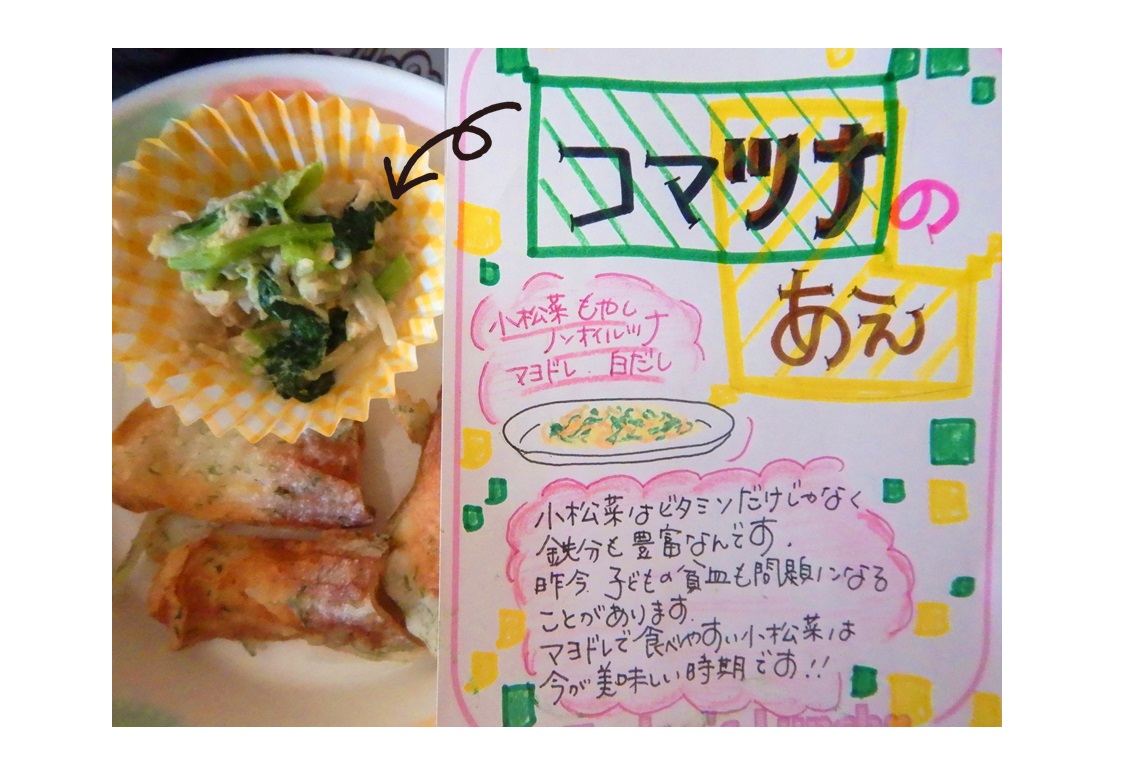 コマツナの
あえ
小松菜 もやし
ノンオイルツナ
マヨドレ 白だし
小松菜はビタミンだけじゃなく
鉄分も豊富なんです.
昨今 子どもの貧血も問題になる
ことがあります.
マヨドレで食べやすい小松菜は
今が美味しい時期です!!